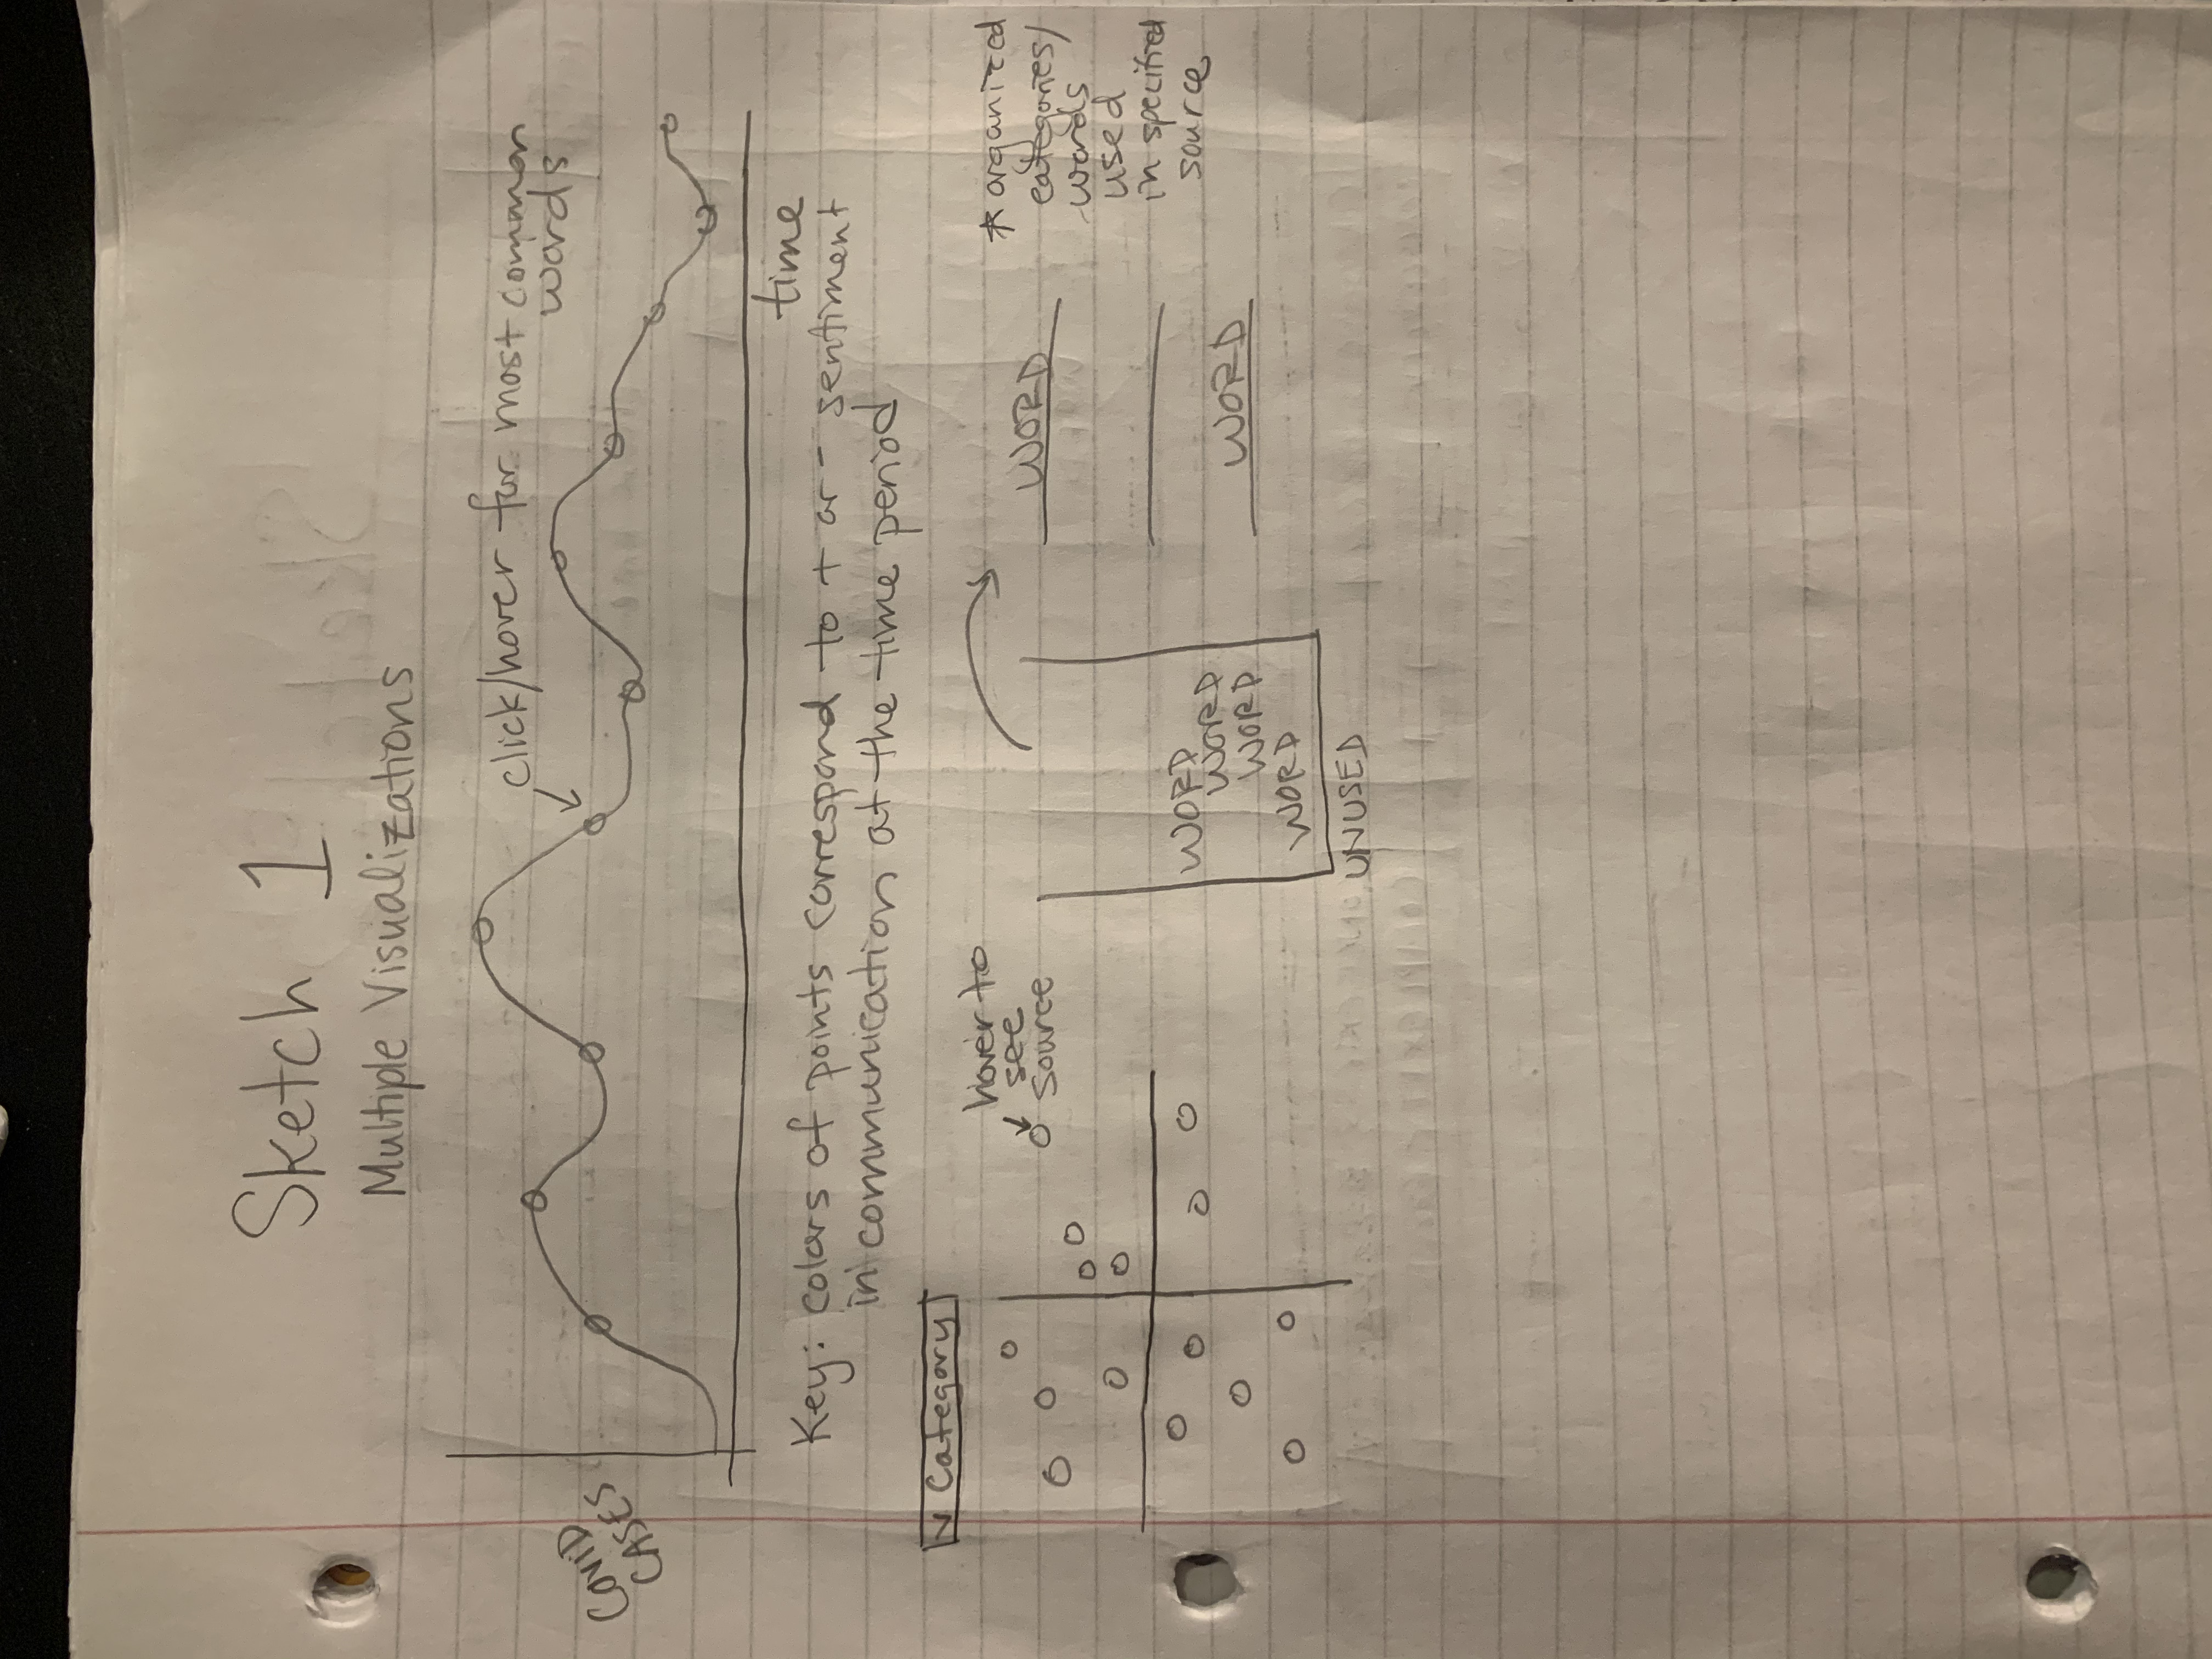 Sketch 1
Multiple Visualizations
click/hover for most common
words
COVID
CASES
time
Key: colors of points correspond to + or - sentiment
in communication at the time period
v Category
hover to
see
source
WORD
WORD
WORD
WORD
UNUSED
WORD
WORD
* organized
categories/
words
used
in specified
source